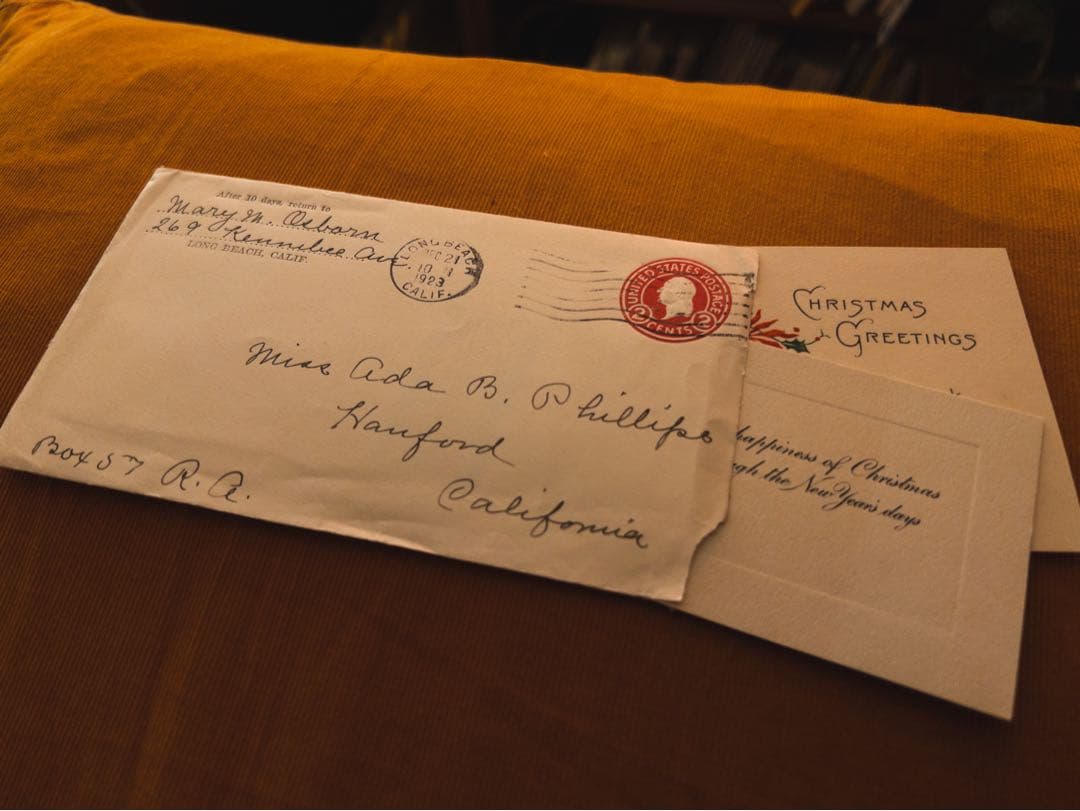 After 10 days, return to
Mary M. Osborn
269 Kennibec Ave.
LONG BEACH, CALIF.
LONG BEACH
DEC 21
10
1923
CALIF.
UNITED STATES POSTAGE
2 CENTS 2
Miss Ada B. Phillips
Hanford
California
Box 57 R. A.
CHRISTMAS
GREETINGS
happiness of Christmas
the New Year's days